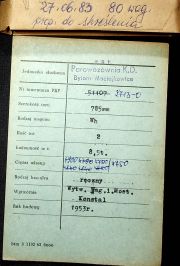 27.06.83 80 wag.
prop. do skreślenia
Jednostka służbowa Parowozownia K.D.
Bytom Maciejkowice
Nr inwentarza PKP 51409 2713-0
Szerokość toru 785mm
Rodzaj wagonu Wh
Ilość osi 2
Ładowność w t. 8,5t.
Ciężar własny 4250
Rodzaj hamulca ręczny
Wytwórnia Wytw. Wag. i Most.
Konstal
Rok budowy 1953r.